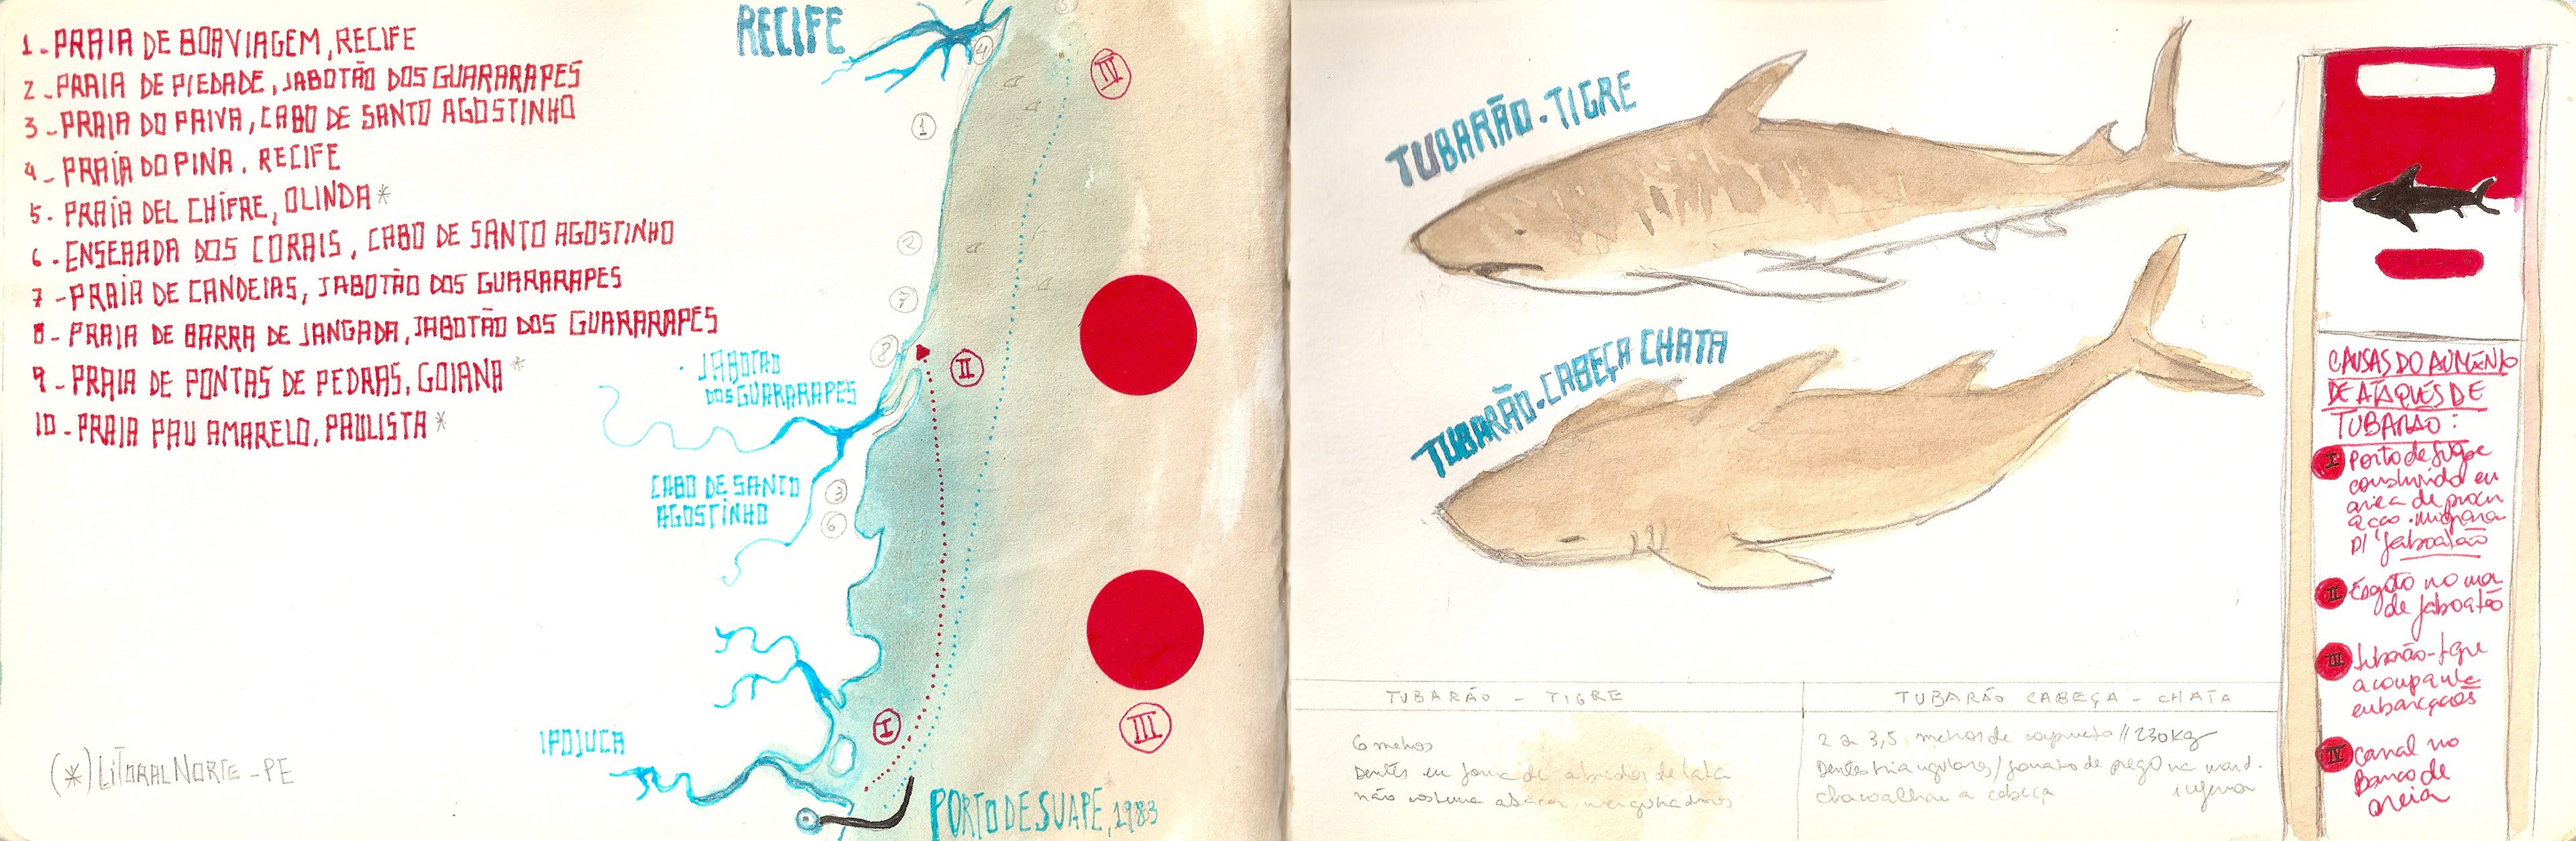 1 - PRAIA DE BOAVIAGEM, RECIFE
2 - PRAIA DE PIEDADE, JABOTÃO DOS GUARARAPES
3 - PRAIA DO PAIVA, CABO DE SANTO AGOSTINHO
4 - PRAIA DO PINA. RECIFE
5 - PRAIA DEL CHIFRE, OLINDA *
6 - ENSEADA DOS CORAIS, CABO DE SANTO AGOSTINHO
7 - PRAIA DE CANDEIAS, JABOTÃO DOS GUARARAPES
8 - PRAIA DE BARRA DE JANGADA, JABOTÃO DOS GUARARAPES
9 - PRAIA DE PONTAS DE PEDRAS, GOIANA *
10 - PRAIA PAU AMARELO, PAULISTA *
(*) LITORAL NORTE - PE
RECIFE
4
IV
1
2
7
8
II
JABOTÃO
DOS GUARARAPES
CABO DE SANTO
AGOSTINHO
3
6
I
III
IPOJUCA
PORTO DE SUAPE, 1983
TUBARÃO - TIGRE
TUBARÃO - CABEÇA CHATA
TUBARÃO - TIGRE
6 metros
Dentes em forma de abridor de lata
não costuma atacar mergulhadores
TUBARÃO CABEÇA - CHATA
2 a 3,5 metros de comprimento // 230kg
Dentes triangulares / formato de prego na mand.
inferior
chacoalha a cabeça
CAUSAS DO AUMENTO
DE ATAQUES DE
TUBARÃO:
I Porto de Suape
construído em
área de
p/ Jaboatão
II Esgoto no mar
de Jaboatão
III tubarão-tigre
acompanha
embarcações
IV Canal no
Banco de
areia